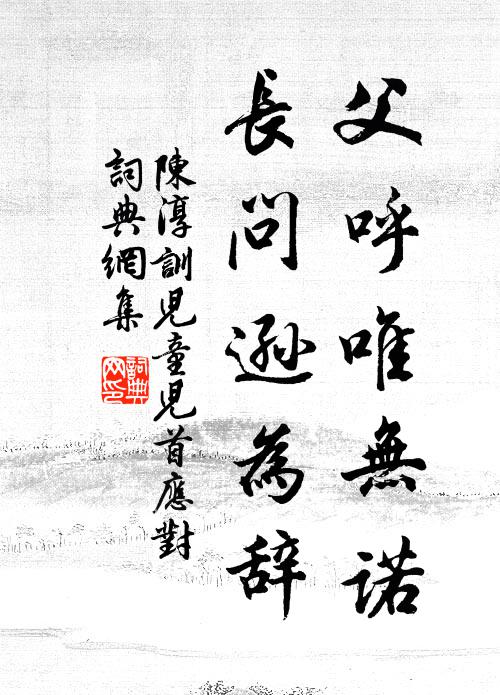 父呼唯無諾
長問遜為辞
陳淳訓児童児首應對
詞典網集
詞典网印